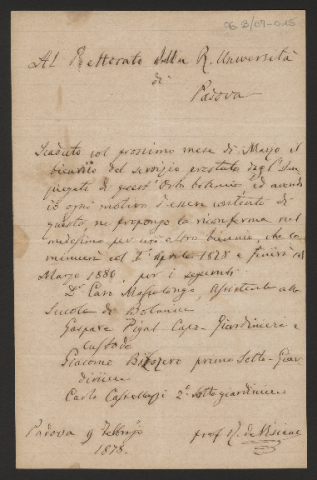 Al Rettorato della R. Università
di
Padova
Scaduto col prossimo mese di Marzo il
biennio del servizio prestato dagl' Im-
piegati di quest' Orto botanico, ed avendo
io ogni motivo d'esser contento di
questo ne propongo la riconferma nel
medesimo per un altro biennio, che co-
mincerà col 1° Aprile 1878 e finirà col
Marzo 1880 per i seguenti
Dr Caro Massalongo, Assistente alla
Scuola di Botanica
Gaspare Pigal Capo-Giardiniere e
Custode
Giacomo Bizzozero primo Sotto-Giar-
diniere
Carlo 2° Sotto giardiniere
Padova 9 Febbrajo
1878.
prof R. de Visiani